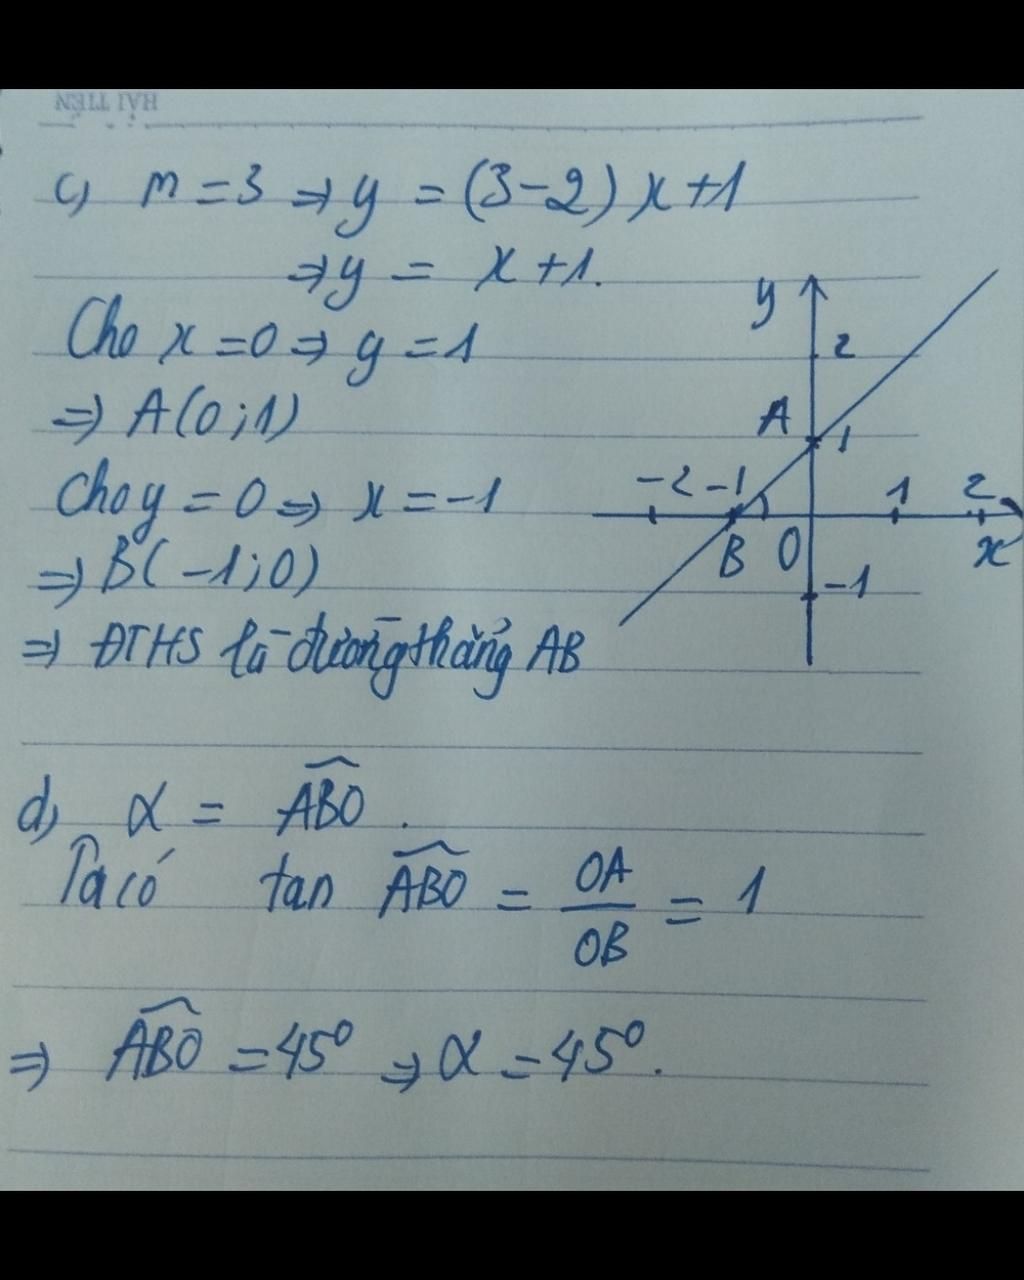 HẢI TIẾN
c) m = 3 ⇒ y = (3-2) x +1
⇒ y = x +1.
Cho x = 0 ⇒ y = 1
⇒ A(0;1)
Cho y = 0 ⇒ x = -1
⇒ B(-1;0)
⇒ ĐTHS là đường thẳng AB
y
2
A
1
-2 -1 1 2
B O x
-1
d) α = \widehat{ABO}.
Ta có tan \widehat{ABO} = \frac{OA}{OB} = 1
⇒ \widehat{ABO} = 45° ⇒ α = 45°.